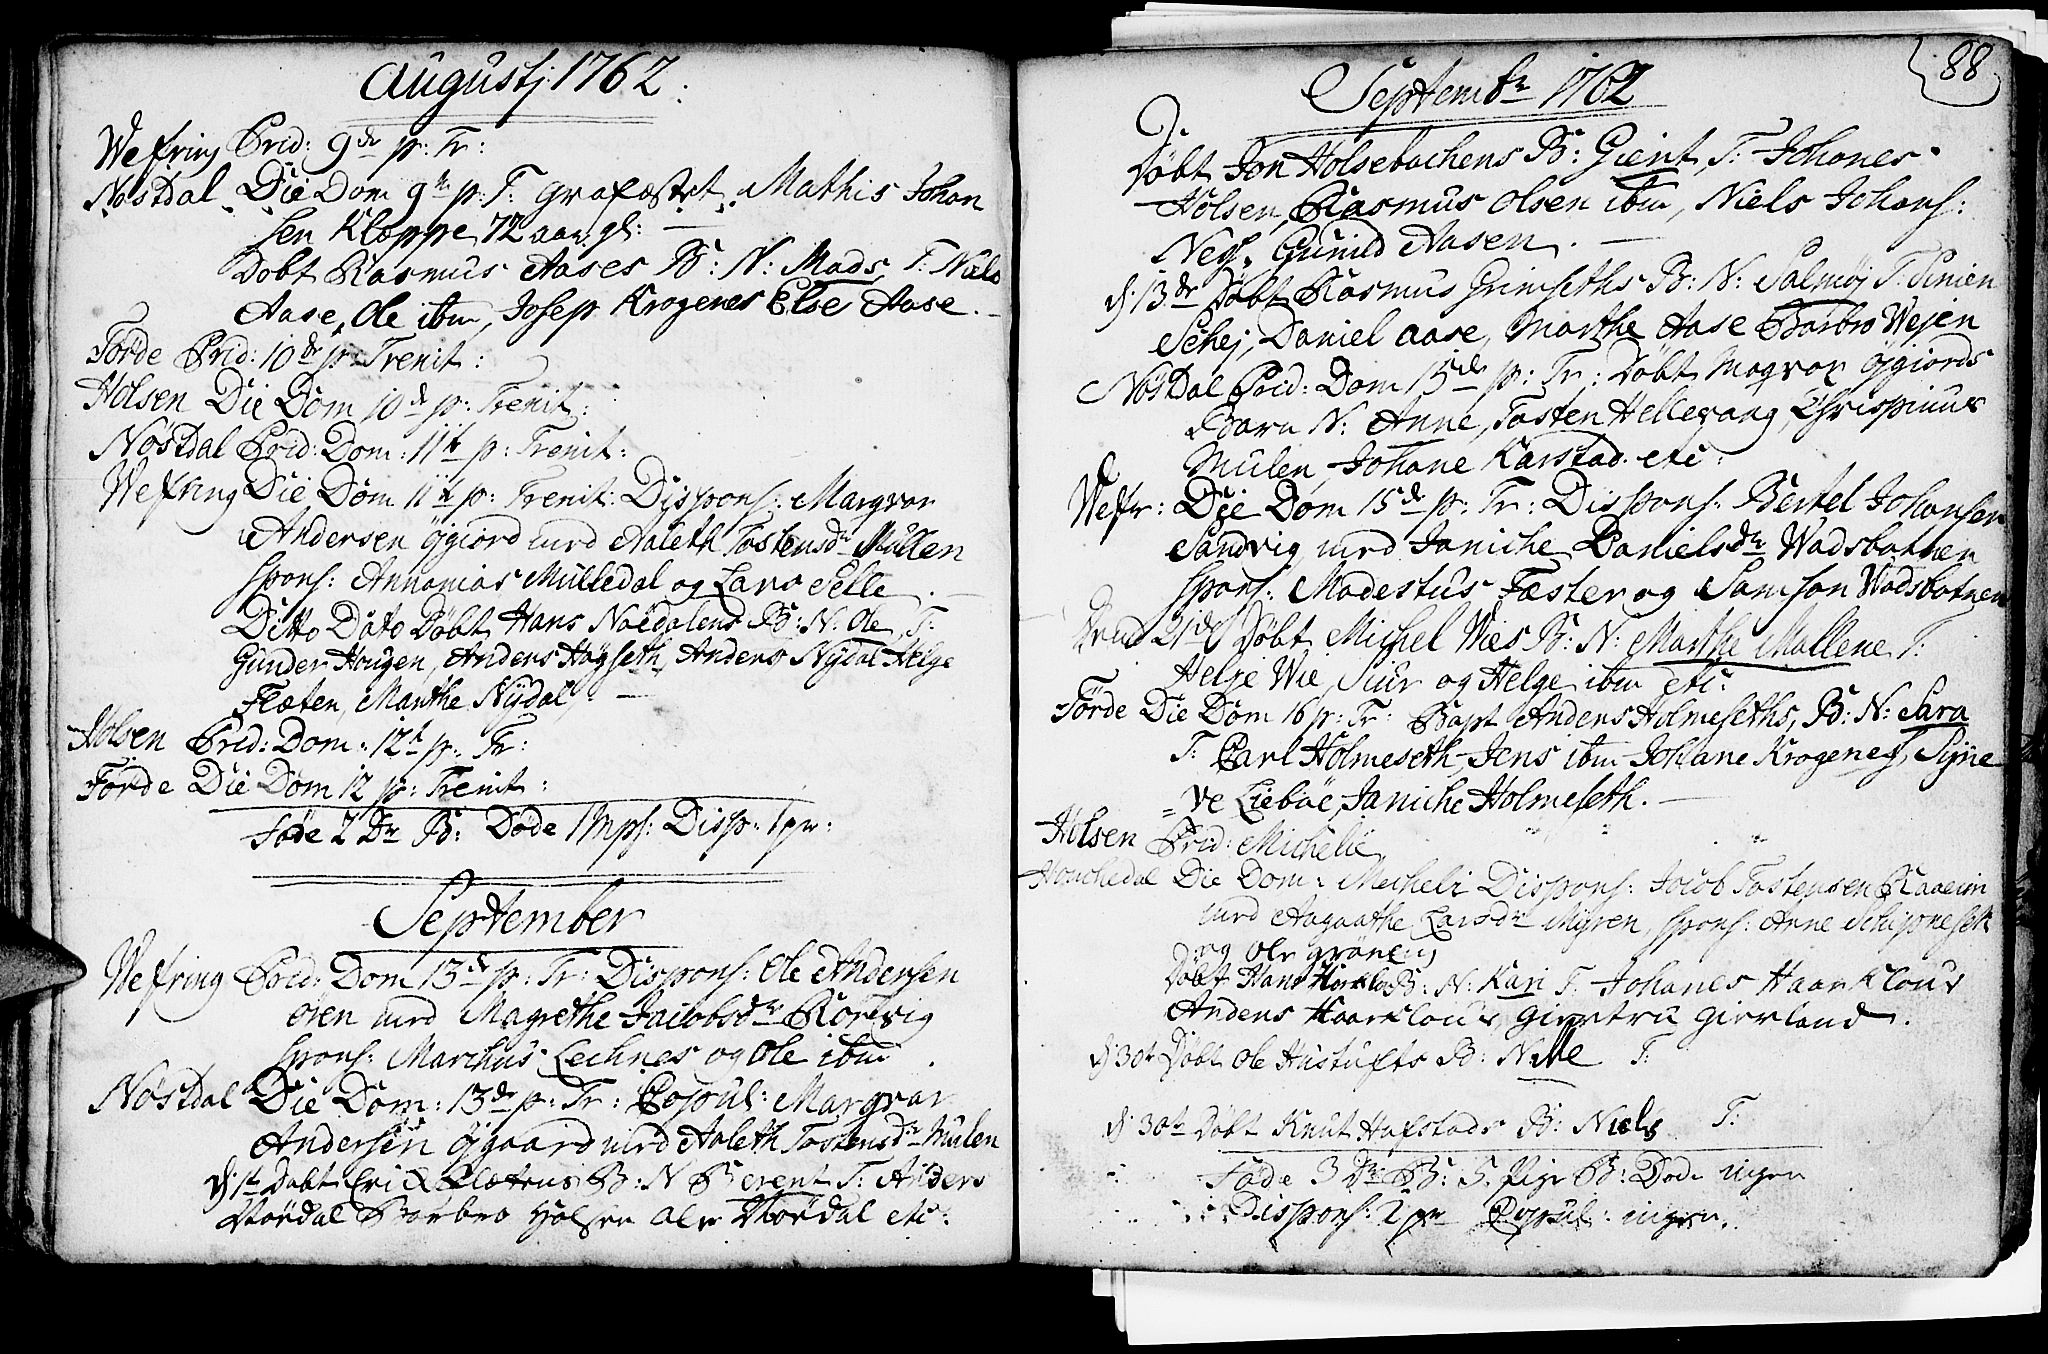 Augustj 1762:
Wefring Prid: 9de p: Tr:
Nøstdal Die Dom 9de p: T: grafæstet Mathis Johan
sen Klæppe 72 aar gl:
Døbt Rasmus Aases B: N: Mads, T: Niels
Aase, Ole ibm, Josep Krogenes Else Aase.
Førde Prid: 10de p: Trenit:
Holsen Die Dom 10de p: Trenit:
Nøstdal Prid: Dom: 11te p: Trenit:
Wefring Die Dom 11te p: Trenit: Dispons: Margvar
Andersen øygiord med Aaleth Tostensdr Mullen
spons: Annanias Mulledal og Lars Selle.
Ditto Dato Døbt Hans Nøedalens B: N: Ole, T:
Gunder Hougen, Anders Høgseth, Anders Nydal Helge
Flæten, Marthe Nydal,
Holsen Prid: Dom: 12te p: Tr:
Førde Die Dom 12 p: Trenit:
Føde 2 Dr B: Døde 1 Mps: Disp: 1 pr:
September
Wefring Prid: Dom 13de p: Tr: Dispons: Ole Andersen
øren med Magrethe Jacobsdr Rørvig
spons: Marchus Lechnes og Ole ibm.
Nøstdal Die Dom: 13de p: Tr: Copul: Margvar
Andersen øygaard med Aaleth Tostensdr Mulen
d: 1st Døbt Eric Flætens B: N Berent T: Anders
Størdal Barbro Hølsen Ole Størdal etc:
88
Septembr 1762
Døbt Jon Holsebachens B: Gient, T: Johanes
Holsen, Rasmus Olsen ibm, Niels Johans:
Negs, Gunild Aasen.
d: 13de Døbt Rasmus Grimseths B: N: Salmøj T: Sinien
Schej, Daniel Aase, Marthe Aase Barbro Wejen
Nøstdal Prid: Dom 15de p: Tr: Døbt Magvar øygiords
Barn N: Anne, Tosten Hellevaag, Chrispinus
Mulen, Johane Karstad etc:
Wefr: Die Dom 15de p: Tr: Dispons: Bertel Johansen
Sandvig med Janiche Danielsdr Wadsbotnen
spons: Madestus Fæster og Samson Wadsbotnen
Den 21de Døbt Michel Wies B: N: Marthe Mallene T:
Helje Wie, Siur og Helge ibm etc:
Førde Die Dom 16 p: Tr: Bapt Anders Holmeseths, B: N: Sara
T: Carl Holmeseth, Jens ibm Johane Krogenes, Syne
=ve Liebøe, Janiche Holmeseth.
Holsen Prid: Michelie
Houchedal Die Dom: Micheli Dispons: Jocob Tostensen Raaeim
med Aagaathe Larsdr Myren, spons: Arne Schipneseth
og Ole grønen
Døbt Hans Horklo B: N: Kari T: Johanes Haarklous
Anders Haarklous, giertru gierland.
d: 30te Døbt Ole Hustufts B: Nille T:
d: 30te Døbt Knut Hafstads B: Niels T:
Føde 3 Dr B: 5 Pige B: Døde ingen
Dispons: 2 pr Copul: ingen.